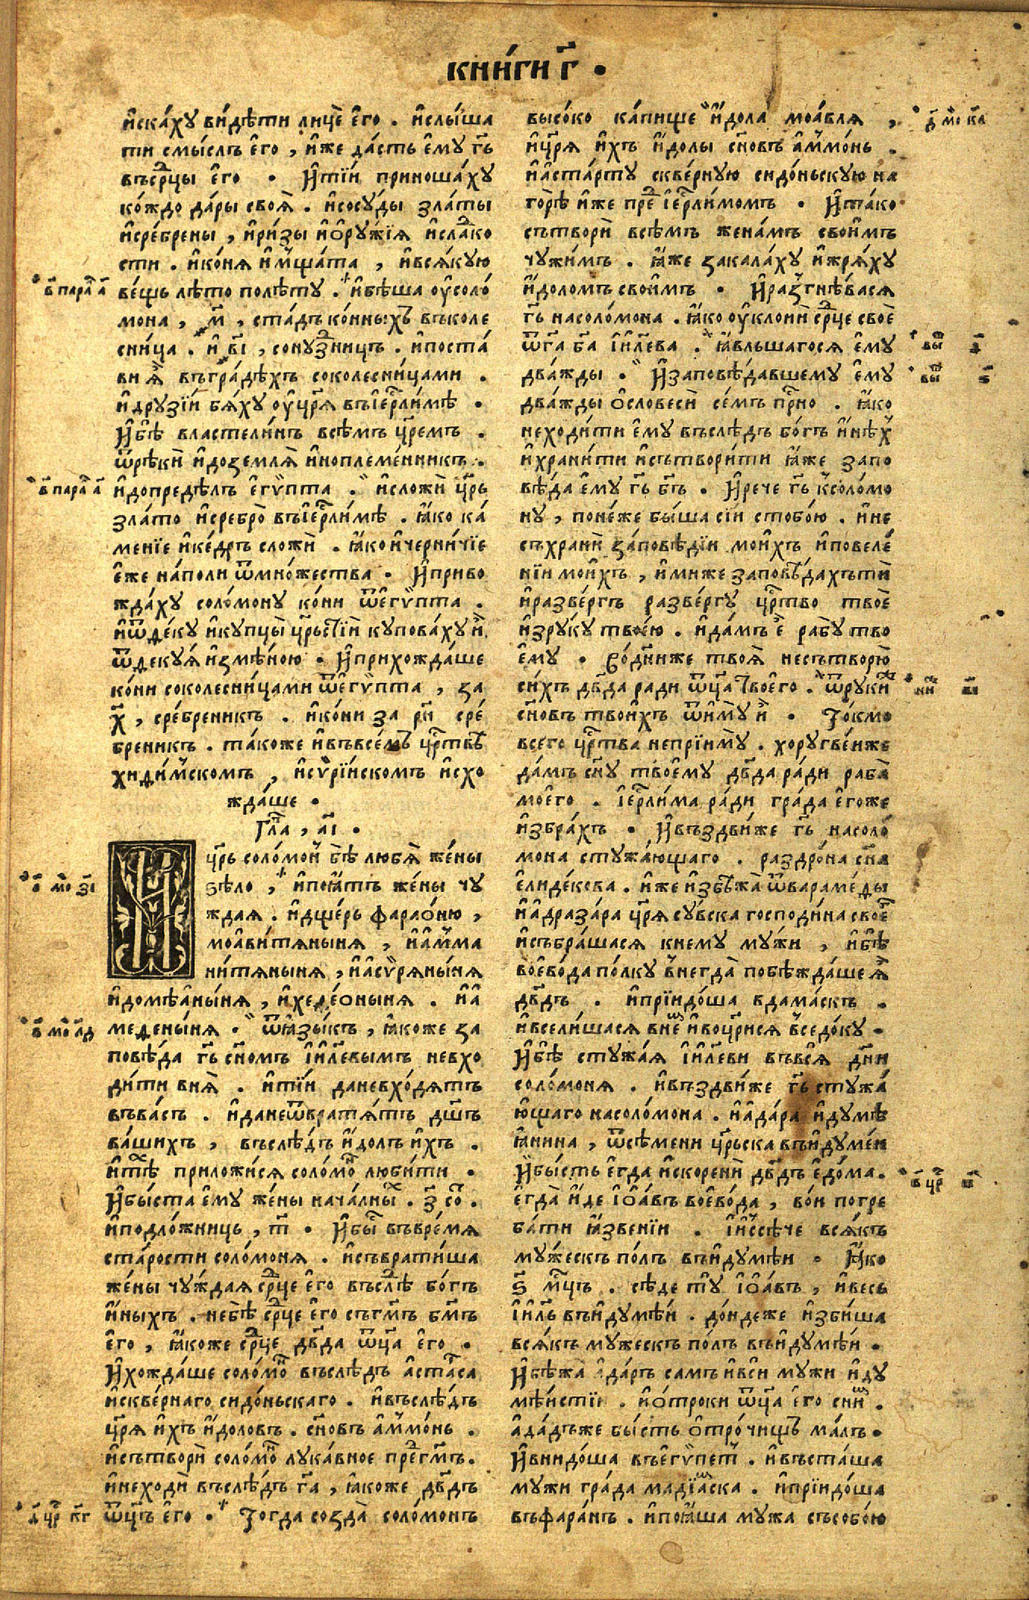 книги г҃ .
искаху видѣти лице его . ислыша
ти смыслъ его , иже дасть ему г҃ь
въср҃цы его . Итїи приношаху
кождо дары своѧ . исосуды златы
исребрены , иризы иѻружїѧ исла́ко
сти . иконѧ имщата , ивсѧкую
в҃ парал҇ а҃
вещь лѣто полѣту . ибѣша оусоло
мона , м҃ , стадъ конныхъ въколе
сница . и в҃і , сонузницъ . ипоста
ви ѧ҆̀ въградѣхъ соколесницами .
идрузїи бѧху оуцр҃ѧ въіер҃лимѣ .
Ибѣ властелинъ всѣмъ цр҃емъ .
ѿрѣки идоземлѧ иноплеменникъ .
в҃ парал҇ а҃
идопредѣлъ егѵпта . исложи цр҃ь
злато исребро въіер҃лимѣ . ꙗко ка
менїе икедръ сложи . ꙗко ичерничїе
еже наполи ѿмножества . Иприво
ждаху соломону кони ѿегѵпта .
иѿдеку икупцы цр҃ьстїи куповаху и .
ѿдекуѧ измѣною . Иприхождаше
кони соколесницами ѿегѵпта , за
х҃ , сребреникъ . икони за р҃н сре
бреникъ . такоже ивъвсемъ цр҃твѣ
хидимскомъ , исѵрїискомъ исхо
ждаше .
Гл҃а , а҃і .
цр҃ь соломон бѣ любѧ жены
в҃ мо з҃і
ѕѣло , ипоꙗтъ жены чу
ждаѧ . идщерь фараѻню ,
моавитѧнынѧ , иамма
нитѧнынѧ , иасѵрѧнынѧ
идомѣанынѧ , ихелеѻнынѧ . иа
в҃ мо л҃д
меденынѧ . ѿꙗзыкъ , ꙗкоже за
повѣда г҃ь сн҃омъ іи҃левымъ невхо
дити внѧ . итїи даневходѧтъ
въвасъ . иданеѿвратѧтъ дш҃ъ
вашихъ , въслѣдъ идолъ ихъ .
итѣ приложисѧ соломо любити .
Ибыста ему жены началны . з҃ со .
иподложниць , т҃ . Ибы въвремѧ
старости соломонѧ . исъвратиша
жены чуждаѧ ср҃це его въслѣ богъ
иныхъ . небѣ ср҃це его съгм҃ъ бм҃ъ
его , ꙗкоже ср҃це дв҃да ѿц҃а его .
Ихождаше соломо въслѣдъ астаса
исквернаго сидоньскаго . ивъслѣдъ
цр҃ѧ ихъ идоловъ . сн҃овъ аммонь .
исътвори соломо лукавное прегм҃ъ .
инеходи въслѣдъ г҃а , ꙗкоже дв҃дъ
д҃ цр҃ к҃г
ѿц҃ъ его . Тогда созда соломонъ
высоко капище идола моавлѧ ,
д҃ мо к҃а
ицр҃ѧ ихъ идолы сн҃овъ аммонь .
иастарту скверную сидоньскую на
горѣ иже пре іер҃лимомъ . Итако
сътвори всѣмъ женамъ своимъ
чужимъ . ꙗже закалаху ижрѧху
идоломъ своимъ . Иразгнѣвасѧ
г҃ь насоломона . ꙗко оуклони ср҃це свое
ѿг҃а б҃а іи҃лева . ꙗвльшагосѧ ему
выш г҃
дважды . Изаповѣдавшему ему
выш ѕ҃
дважды ѻсловеси семъ пр҃но . ꙗко
неходити ему въслѣдъ богъ инѣх
ихранити исътворити ꙗже запо
вѣда ему г҃ь б҃ъ . Ирече г҃ь ксоломо
ну , понеже быша сїи стобою . ине
съхрани заповѣдїи моихъ иповеле
нїи моихъ , имиже заповѣдахъти
иразвергъ развергу цр҃тво твое
изруку твоею . идамъ е рабу тво
ему . Ѻбодн҃иже твоѧ несътворю
сихъ дв҃да ради ѿц҃а твоего . ѿруки
ниж в҃і
сн҃овъ твоихъ ѿиму и . Токмо
всего цр҃тва неприиму . хоругвениже
дамъ сн҃у твоему дв҃да ради раба
моего . іер҃лима ради града егоже
избрахъ . Ивъздвиже г҃ь насоло
мона стужающаго . раздрона сн҃а
елидекова . иже избѣжа ѿварамеды
иадразара цр҃ѧ сувска господина свое
исъбрашасѧ кнему мужи , ибѣ
воевода полку внегда побѣждаше ѧ
дв҃дъ . иприидоша вдамаскъ .
ивселишасѧ вне ивоцр҃исѧ вседоку .
Ибѣ стужаѧ іи҃леви въвсѧ дн҃и
соломонѧ . ивъздвиже г҃ь стужа
ющаго насоломона . иадара идумѣ
ꙗнина , ѿсѣмени цр҃ьска въидумеи
Ибысть егда искорени дв҃дъ едома .
в҃ цр҃
егда иде іѻавъ воевода , вои погре
бати ꙗзвенїи . іиссѣче всѧкъ
мужескъ полъ въидумѣи . Ꙗко
ѕ҃ мц҃ъ . сѣде ту іѻавъ , ивесь
іи҃ль въидумѣи . дондеже избиша
всѧкъ мужескъ полъ въидумѣи .
Ибѣжа адаръ самъ ивси мужи иду
мѣистїи . иѻтроки ѿц҃а его сни .
ададъже бысть ѻтрочищъ малъ .
Ивнидоша въегѵпет . ивъсташа
мужи града мадїамска . иприидоша
въфаранъ . ипоꙗша мужа съсобою